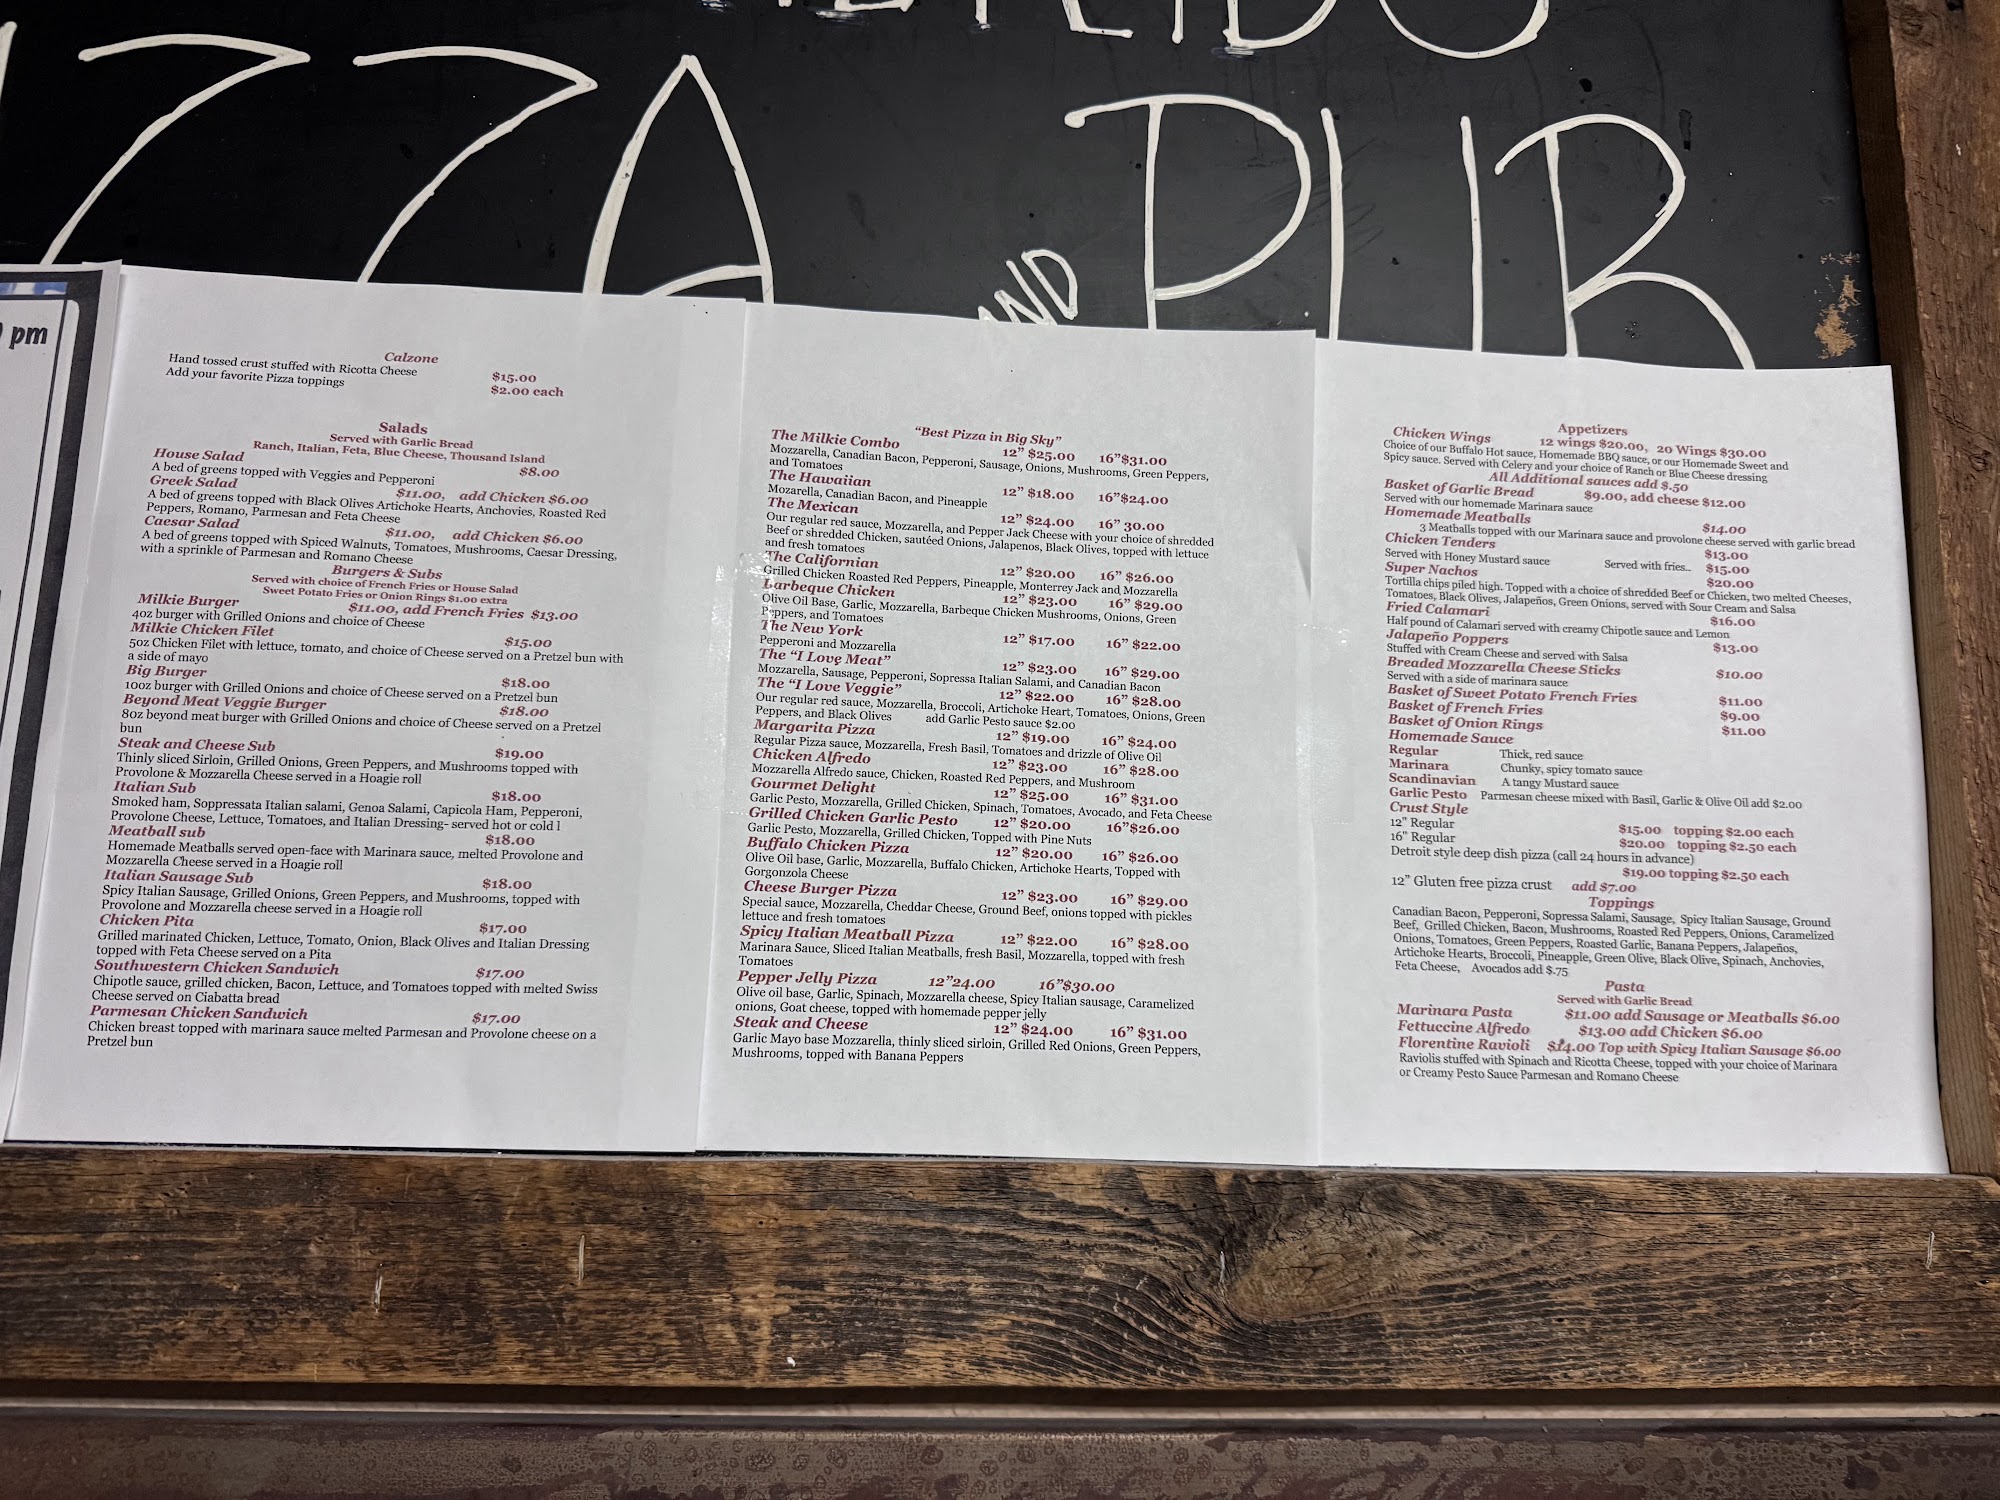 ZZA AND PUB
pm
Calzone
Hand tossed crust stuffed with Ricotta Cheese $15.00
Add your favorite Pizza toppings $2.00 each
Salads
Served with Garlic Bread
Ranch, Italian, Feta, Blue Cheese, Thousand Island
House Salad $8.00
A bed of greens topped with Veggies and Pepperoni
Greek Salad $11.00, add Chicken $6.00
A bed of greens topped with Black Olives Artichoke Hearts, Anchovies, Roasted Red
Peppers, Romano, Parmesan and Feta Cheese
Caesar Salad $11.00, add Chicken $6.00
A bed of greens topped with Spiced Walnuts, Tomatoes, Mushrooms, Caesar Dressing,
with a sprinkle of Parmesan and Romano Cheese
Burgers & Subs
Served with choice of French Fries or House Salad
Sweet Potato Fries or Onion Rings $1.00 extra
Milkie Burger $11.00, add French Fries $13.00
4oz burger with Grilled Onions and choice of Cheese
Milkie Chicken Filet $15.00
5oz Chicken Filet with lettuce, tomato, and choice of Cheese served on a Pretzel bun with
a side of mayo
Big Burger $18.00
10oz burger with Grilled Onions and choice of Cheese served on a Pretzel bun
Beyond Meat Veggie Burger $18.00
8oz beyond meat burger with Grilled Onions and choice of Cheese served on a Pretzel
bun
Steak and Cheese Sub $19.00
Thinly sliced Sirloin, Grilled Onions, Green Peppers, and Mushrooms topped with
Provolone & Mozzarella Cheese served in a Hoagie roll
Italian Sub $18.00
Smoked ham, Soppressata Italian salami, Genoa Salami, Capicola Ham, Pepperoni,
Provolone Cheese, Lettuce, Tomatoes, and Italian Dressing- served hot or cold l
Meatball sub $18.00
Homemade Meatballs served open-face with Marinara sauce, melted Provolone and
Mozzarella Cheese served in a Hoagie roll
Italian Sausage Sub $18.00
Spicy Italian Sausage, Grilled Onions, Green Peppers, and Mushrooms, topped with
Provolone and Mozzarella cheese served in a Hoagie roll
Chicken Pita $17.00
Grilled marinated Chicken, Lettuce, Tomato, Onion, Black Olives and Italian Dressing
topped with Feta Cheese served on a Pita
Southwestern Chicken Sandwich $17.00
Chipotle sauce, grilled chicken, Bacon, Lettuce, and Tomatoes topped with melted Swiss
Cheese served on Ciabatta bread
Parmesan Chicken Sandwich $17.00
Chicken breast topped with marinara sauce melted Parmesan and Provolone cheese on a
Pretzel bun
"Best Pizza in Big Sky"
The Milkie Combo 12" $25.00 16"$31.00
Mozzarella, Canadian Bacon, Pepperoni, Sausage, Onions, Mushrooms, Green Peppers,
and Tomatoes
The Hawaiian 12" $18.00 16"$24.00
Mozarella, Canadian Bacon, and Pineapple
The Mexican 12" $24.00 16" 30.00
Our regular red sauce, Mozzarella, and Pepper Jack Cheese with your choice of shredded
Beef or shredded Chicken, sautéed Onions, Jalapenos, Black Olives, topped with lettuce
and fresh tomatoes
The Californian 12" $20.00 16" $26.00
Grilled Chicken Roasted Red Peppers, Pineapple, Monterrey Jack and Mozzarella
Barbeque Chicken 12" $23.00 16" $29.00
Olive Oil Base, Garlic, Mozzarella, Barbeque Chicken Mushrooms, Onions, Green
Peppers, and Tomatoes
The New York 12" $17.00 16" $22.00
Pepperoni and Mozzarella
The "I Love Meat" 12" $23.00 16" $29.00
Mozzarella, Sausage, Pepperoni, Sopressa Italian Salami, and Canadian Bacon
The "I Love Veggie" 12" $22.00 16" $28.00
Our regular red sauce, Mozzarella, Broccoli, Artichoke Heart, Tomatoes, Onions, Green
Peppers, and Black Olives add Garlic Pesto sauce $2.00
Margarita Pizza 12" $19.00 16" $24.00
Regular Pizza sauce, Mozzarella, Fresh Basil, Tomatoes and drizzle of Olive Oil
Chicken Alfredo 12" $23.00 16" $28.00
Mozzarella Alfredo sauce, Chicken, Roasted Red Peppers, and Mushroom
Gourmet Delight 12" $25.00 16" $31.00
Garlic Pesto, Mozzarella, Grilled Chicken, Spinach, Tomatoes, Avocado, and Feta Cheese
Grilled Chicken Garlic Pesto 12" $20.00 16"$26.00
Garlic Pesto, Mozzarella, Grilled Chicken, Topped with Pine Nuts
Buffalo Chicken Pizza 12" $20.00 16" $26.00
Olive Oil base, Garlic, Mozzarella, Buffalo Chicken, Artichoke Hearts, Topped with
Gorgonzola Cheese
Cheese Burger Pizza 12" $23.00 16" $29.00
Special sauce, Mozzarella, Cheddar Cheese, Ground Beef, onions topped with pickles
lettuce and fresh tomatoes
Spicy Italian Meatball Pizza 12" $22.00 16" $28.00
Marinara Sauce, Sliced Italian Meatballs, fresh Basil, Mozzarella, topped with fresh
Tomatoes
Pepper Jelly Pizza 12"24.00 16"$30.00
Olive oil base, Garlic, Spinach, Mozzarella cheese, Spicy Italian sausage, Caramelized
onions, Goat cheese, topped with homemade pepper jelly
Steak and Cheese 12" $24.00 16" $31.00
Garlic Mayo base Mozzarella, thinly sliced sirloin, Grilled Red Onions, Green Peppers,
Mushrooms, topped with Banana Peppers
Appetizers
Chicken Wings 12 wings $20.00, 20 Wings $30.00
Choice of our Buffalo Hot sauce, Homemade BBQ sauce, or our Homemade Sweet and
Spicy sauce. Served with Celery and your choice of Ranch or Blue Cheese dressing
All Additional sauces add $.50
Basket of Garlic Bread $9.00, add cheese $12.00
Served with our homemade Marinara sauce
Homemade Meatballs $14.00
3 Meatballs topped with our Marinara sauce and provolone cheese served with garlic bread
Chicken Tenders $13.00
Served with Honey Mustard sauce Served with fries.. $15.00
Super Nachos $20.00
Tortilla chips piled high. Topped with a choice of shredded Beef or Chicken, two melted Cheeses,
Tomatoes, Black Olives, Jalapeños, Green Onions, served with Sour Cream and Salsa
Fried Calamari $16.00
Half pound of Calamari served with creamy Chipotle sauce and Lemon
Jalapeño Poppers $13.00
Stuffed with Cream Cheese and served with Salsa
Breaded Mozzarella Cheese Sticks $10.00
Served with a side of marinara sauce
Basket of Sweet Potato French Fries $11.00
Basket of French Fries $9.00
Basket of Onion Rings $11.00
Homemade Sauce
Regular Thick, red sauce
Marinara Chunky, spicy tomato sauce
Scandinavian A tangy Mustard sauce
Garlic Pesto Parmesan cheese mixed with Basil, Garlic & Olive Oil add $2.00
Crust Style
12" Regular $15.00 topping $2.00 each
16" Regular $20.00 topping $2.50 each
Detroit style deep dish pizza (call 24 hours in advance)
$19.00 topping $2.50 each
12" Gluten free pizza crust add $7.00
Toppings
Canadian Bacon, Pepperoni, Sopressa Salami, Sausage, Spicy Italian Sausage, Ground
Beef, Grilled Chicken, Bacon, Mushrooms, Roasted Red Peppers, Onions, Caramelized
Onions, Tomatoes, Green Peppers, Roasted Garlic, Banana Peppers, Jalapeños,
Artichoke Hearts, Broccoli, Pineapple, Green Olive, Black Olive, Spinach, Anchovies,
Feta Cheese, Avocados add $.75
Pasta
Served with Garlic Bread
Marinara Pasta $11.00 add Sausage or Meatballs $6.00
Fettuccine Alfredo $13.00 add Chicken $6.00
Florentine Ravioli $14.00 Top with Spicy Italian Sausage $6.00
Raviolis stuffed with Spinach and Ricotta Cheese, topped with your choice of Marinara
or Creamy Pesto Sauce Parmesan and Romano Cheese